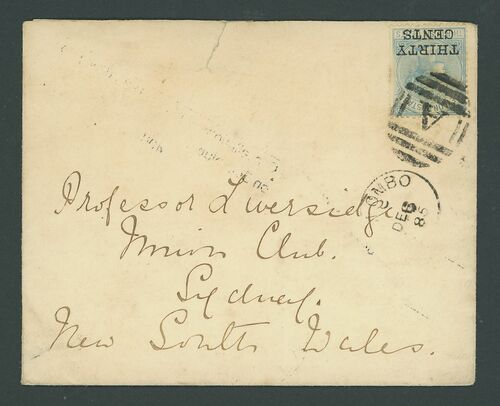 THIRTY
CENTS
A
OMBO
DE 6
85
Professor Liversidge
Union Club.
Sydney.
New South Wales.